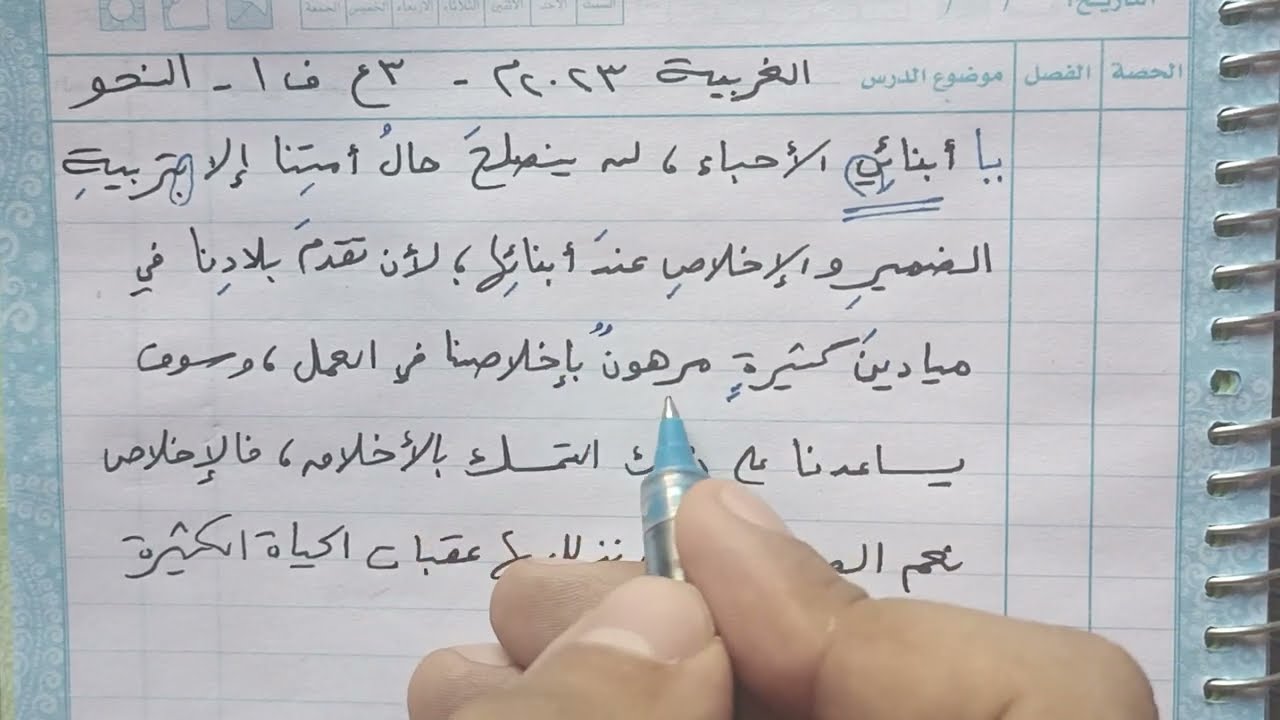 التاريخ: / /
السبت الأحد الاثنين الثلاثاء الأربعاء الخميس الجمعة
الحصة الفصل موضوع الدرس الغربية ٢٠٢٣م - ٣ع ف ١ - النحو
يا أبنائي الأحباء، لن ينصلحَ حالُ أمتِنا إلا بتربيةِ
الضميرِ والإخلاصِ عندَ أبنائِها، لأن تقدمَ بلادِنا في
ميادينَ كثيرةٍ مرهونٌ بإخلاصنا في العمل، وسوف
يساعدنا على التمسك بالأخلاق، فالإخلاص
نعم عقبات الحياة الكثيرة